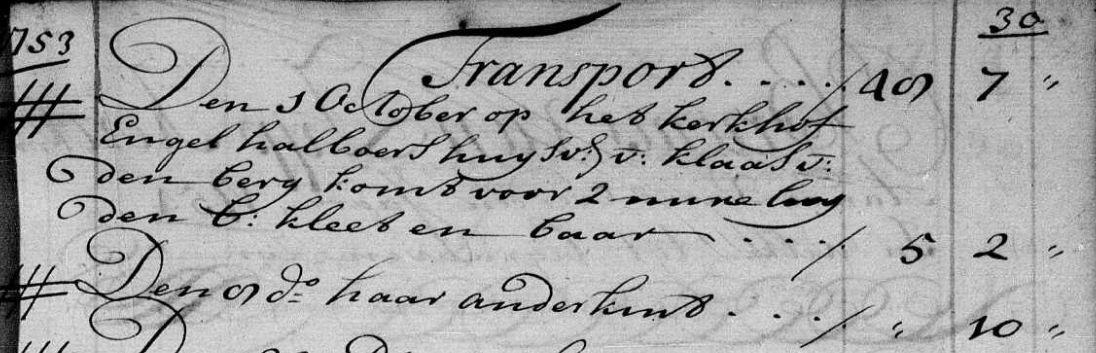 30
1753
Transport . . . . / 49 7 "
Den 1 October op het kerkhof
Engel halboers huysv: v: klaas v:
den berg komt voor 2 uure luy
den b: kleet en baar . . . . / 5 2 "
Den 9 do haar ander kint . . . . / " 10 "